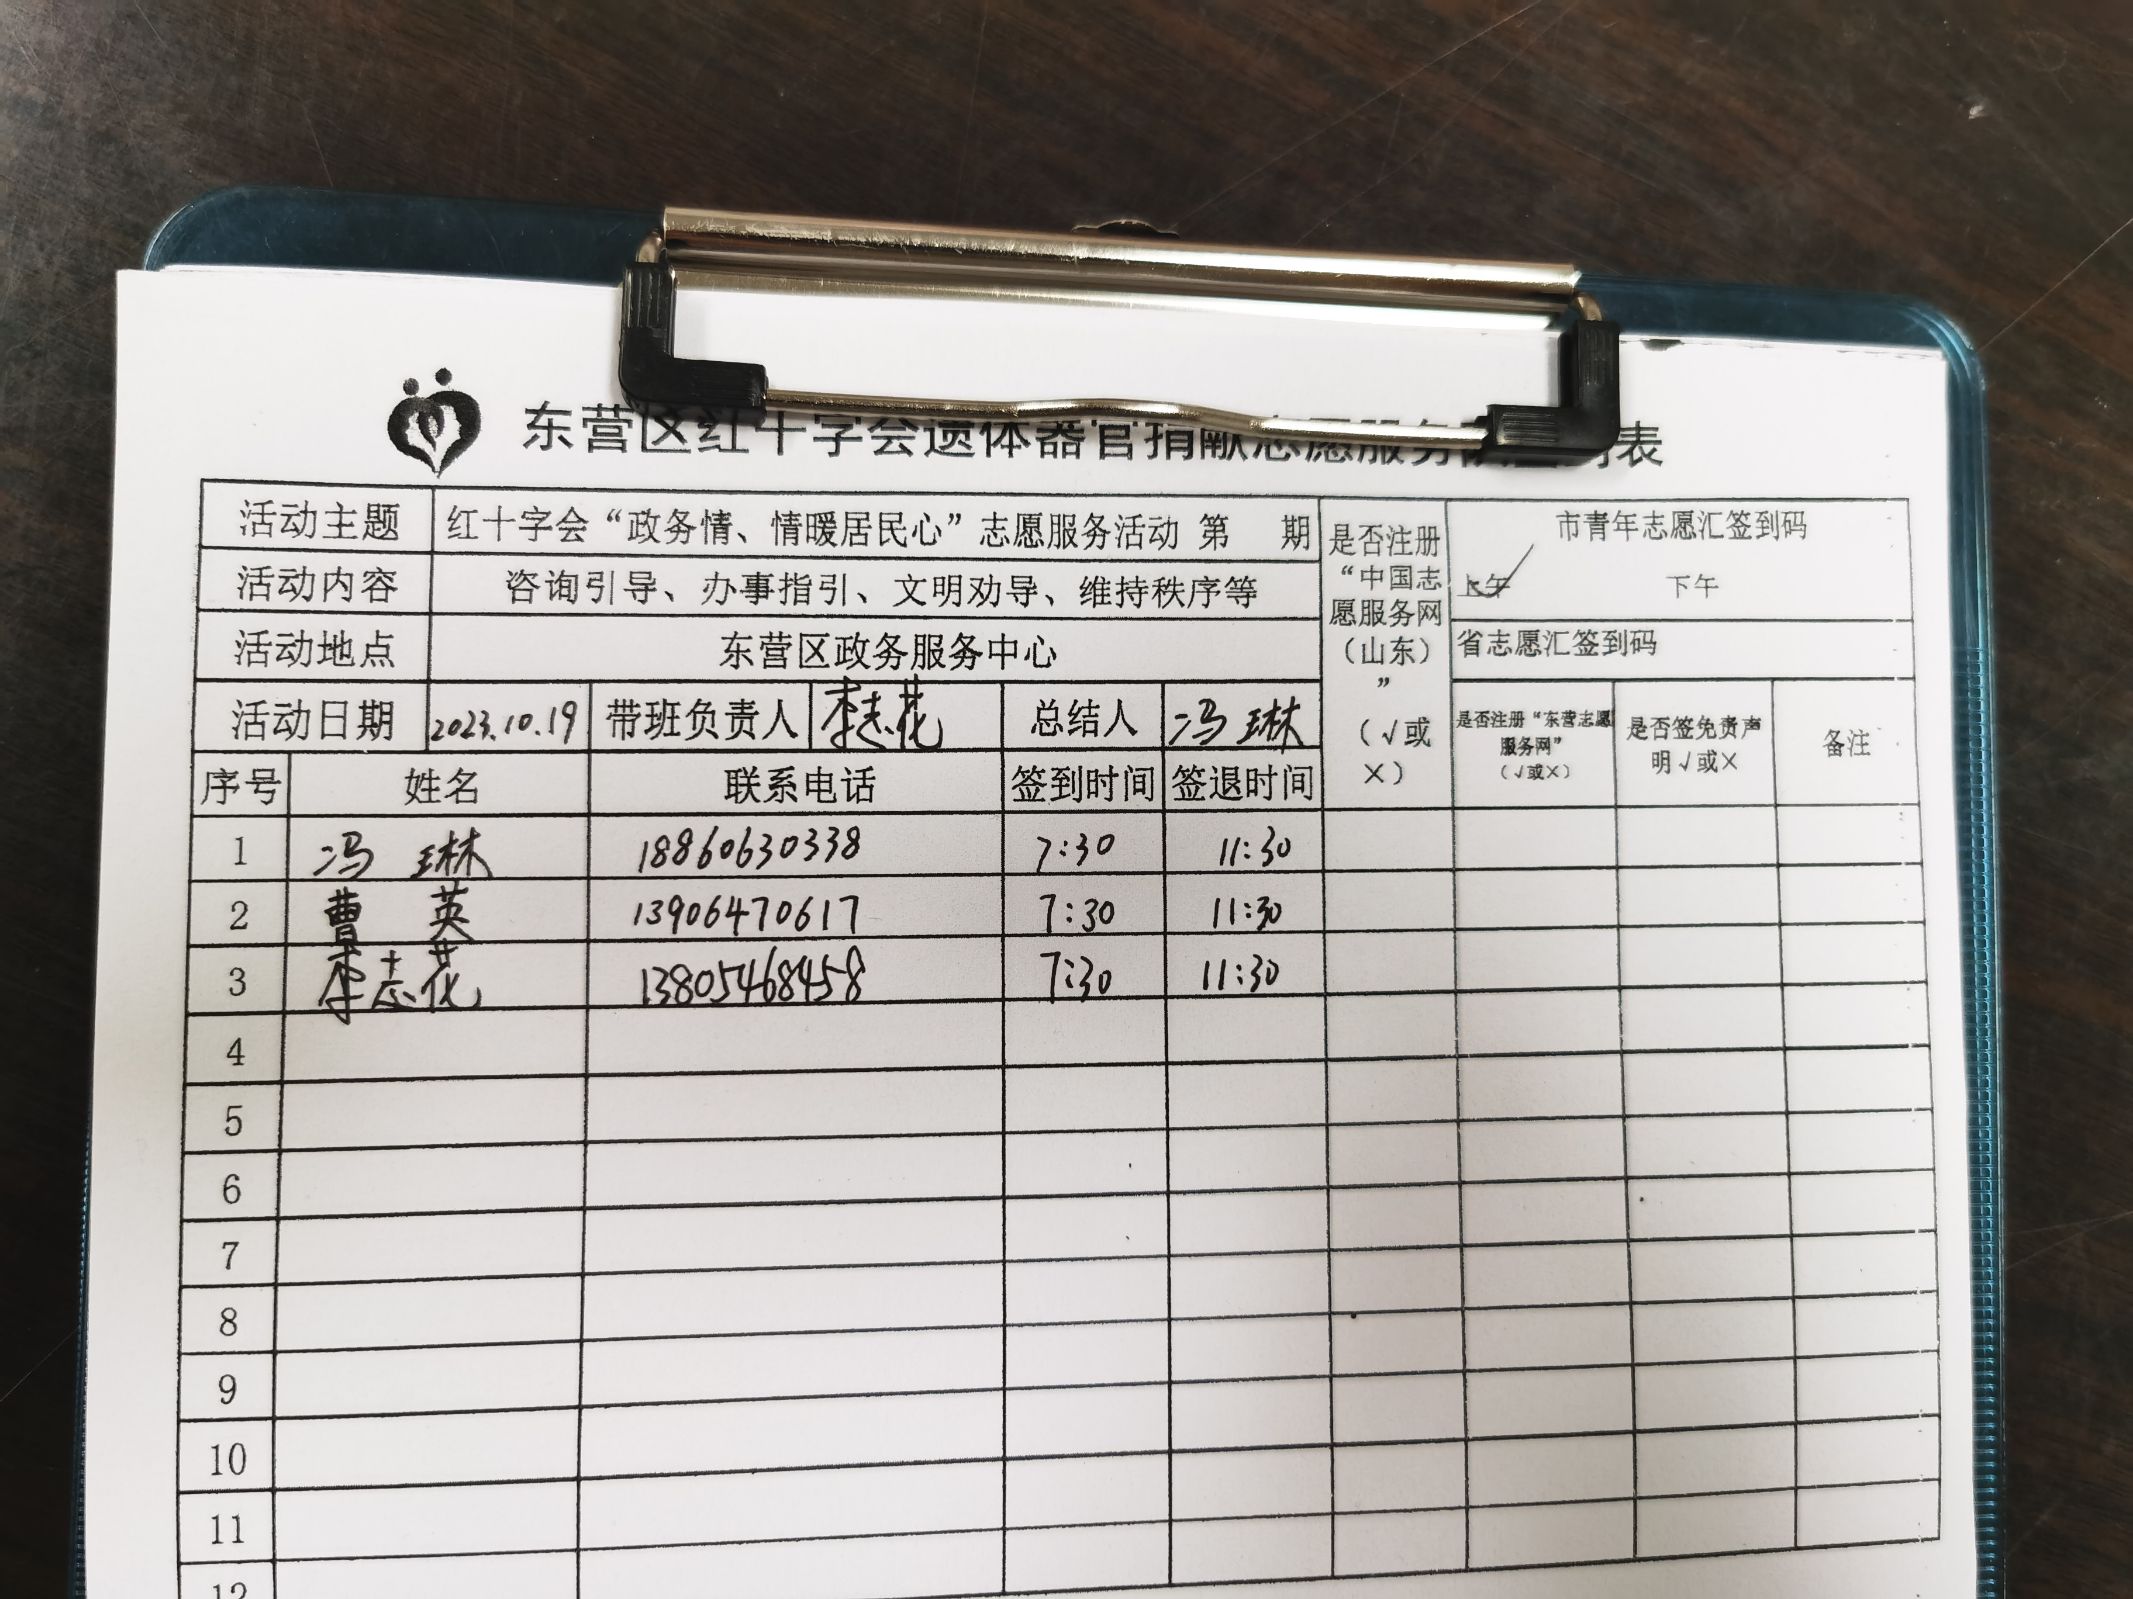 东营区红十字会遗体器官捐献志愿服务 表
活动主题 红十字会“政务情、情暖居民心”志愿服务活动 第 期
活动内容 咨询引导、办事指引、文明劝导、维持秩序等
活动地点 东营区政务服务中心
活动日期 2023.10.19 带班负责人 李志花 总结人 冯琳
是否注册
“中国志
愿服务网
（山东）
”
（√或
×）
市青年志愿汇签到码
上午 下午
省志愿汇签到码
是否注册“东营志愿
服务网”
（√或×）
是否签免责声
明√或×
备注
序号 姓名 联系电话 签到时间 签退时间
1 冯琳 18860630338 7:30 11:30
2 曹英 13906470617 7:30 11:30
3 李志花 13805468458 7:30 11:30
4
5
6
7
8
9
10
11
12